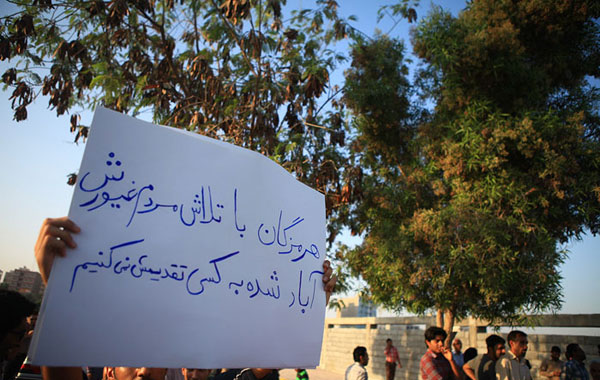 هرمزگان با تلاش مردم غیورش
آباد شده به کسی تقدیمش نمی کنیم